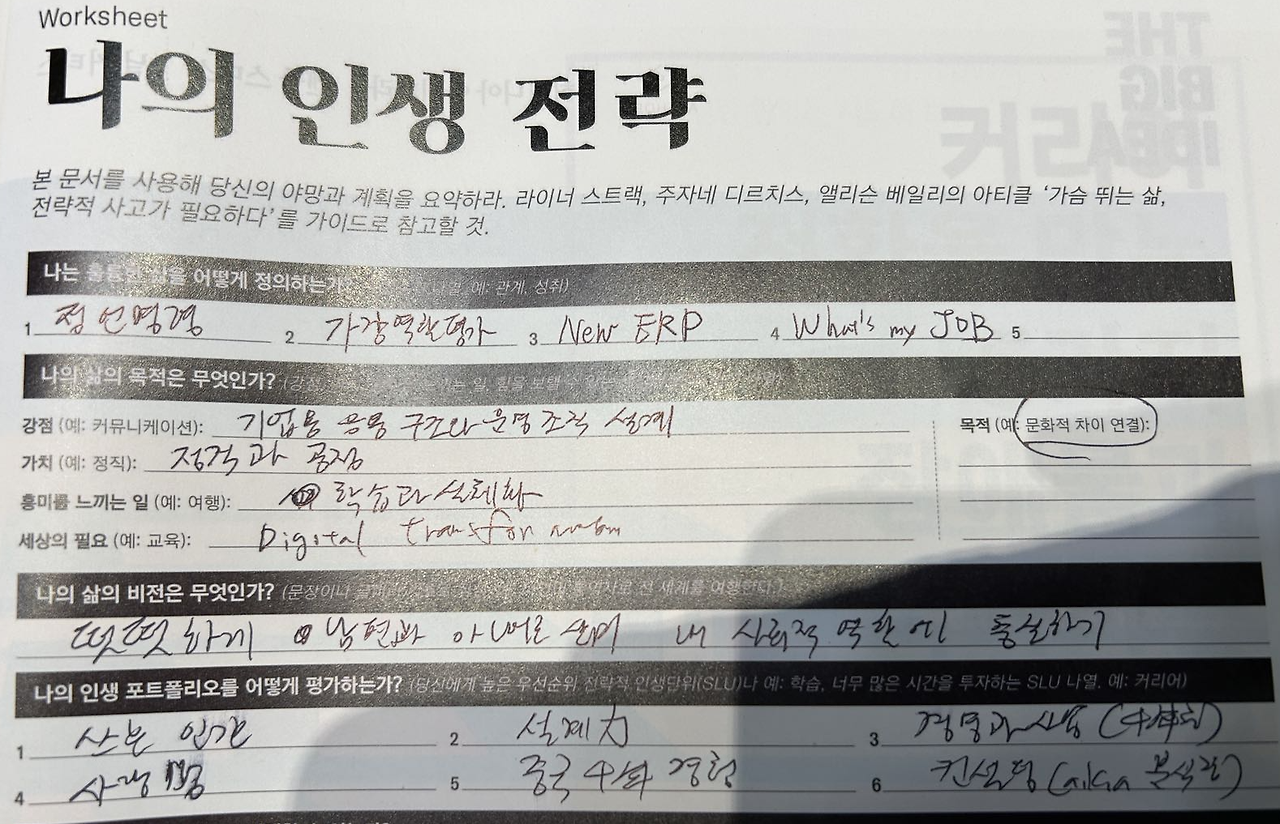 Worksheet
나의 인생 전략
본 문서를 사용해 당신의 야망과 계획을 요약하라. 라이너 스트랙, 주자네 디르치스, 앨리슨 베일리의 아티클 ‘가슴 뛰는 삶,
전략적 사고가 필요하다’를 가이드로 참고할 것.
나는 훌륭한 삶을 어떻게 정의하는가? 예: 관계, 성취)
1 정언명령 2 가장역할평가 3 New ERP 4 What's my JOB 5
나의 삶의 목적은 무엇인가?
강점 (예: 커뮤니케이션): 기업용 응용 구조와 운영조직 설계 목적 (예: 문화적 차이 연결):
가치 (예: 정직): 정직과 공정
흥미를 느끼는 일 (예: 여행): 학습과 실체화
세상의 필요 (예: 교육): Digital transformation
나의 삶의 비전은 무엇인가? (문장이나 전 세계를 여행한다.)
떳떳하게 남편과 아버로 살며 내 사회적 역할에 충실하기
나의 인생 포트폴리오를 어떻게 평가하는가? (당신에게 높은 우선순위 전략적 인생단위(SLU)나 예: 학습, 너무 많은 시간을 투자하는 SLU 나열. 예: 커리어)
1 산본 인간 2 설계力 3
4 5 중국 경험 6 컨설팅 (aka 분석관)